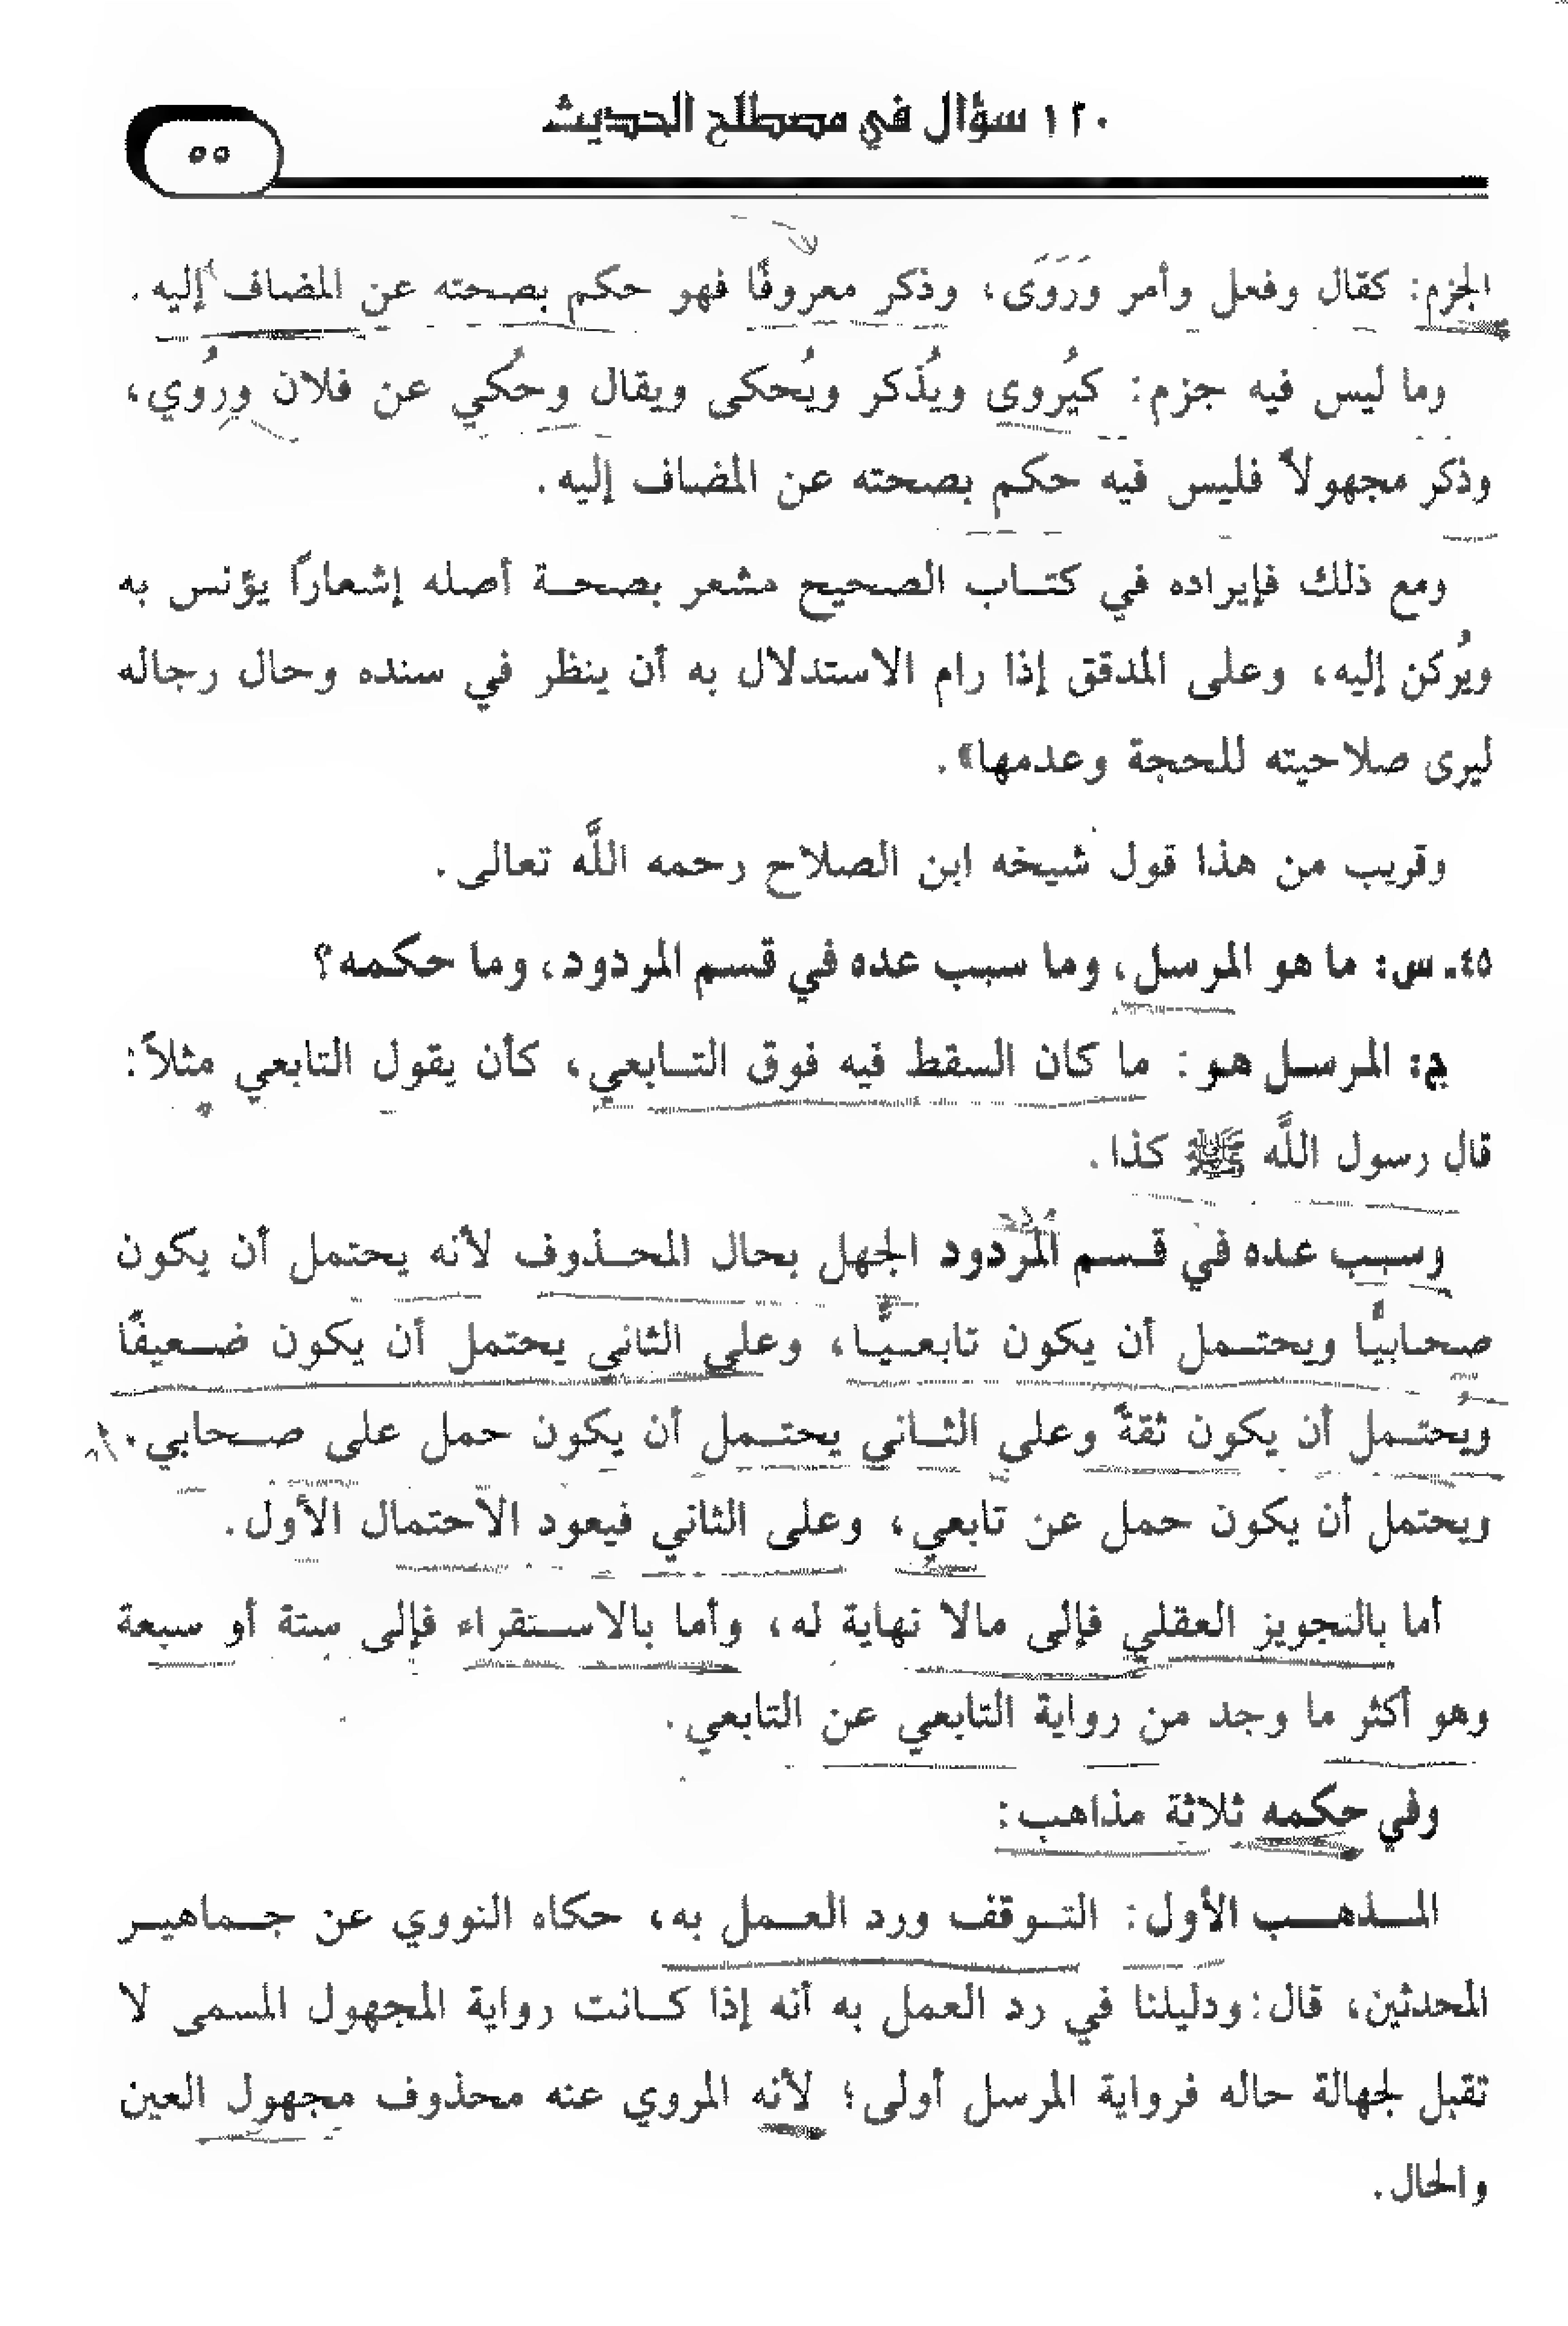 ١٢٠ سؤال في مصطلح الحديث
٥٥
الجزم: كقال وفعل وأمر ورَوَى، وذكر معروفًا فهو حكم بصحته عن المضاف إليه.
وما ليس فيه جزم: كيُروى ويُذكر ويُحكى ويقال وحُكي عن فلان ورُوي،
وذكر مجهولاً فليس فيه حكم بصحته عن المضاف إليه.
ومع ذلك فإيراده في كتاب الصحيح مشعر بصحة أصله إشعارًا يؤنس به
ويُركن إليه، وعلى المدقق إذا رام الاستدلال به أن ينظر في سنده وحال رجاله
ليرى صلاحيته للحجة وعدمها».
وقريب من هذا قول شيخه ابن الصلاح رحمه اللَّه تعالى.
٤٥ـ س: ما هو المرسل، وما سبب عده في قسم المردود، وما حكمه؟
ج: المرسل هو: ما كان السقط فيه فوق التابعي، كأن يقول التابعي مثلاً:
قال رسول اللَّه ﷺ كذا.
وسبب عده في قسم المردود الجهل بحال المحذوف لأنه يحتمل أن يكون
صحابيًّا ويحتمل أن يكون تابعيًّا، وعلى الثاني يحتمل أن يكون ضعيفًا
ويُحتمل أن يكون ثقةً وعلى الثاني يحتمل أن يكون حمل على صحابي.
ويحتمل أن يكون حمل عن تابعي، وعلى الثاني فيعود الاحتمال الأول.
أما بالتجويز العقلي فإلى مالا نهاية له، وأما بالاستقراء فإلى ستة أو سبعة
وهو أكثر ما وجد من رواية التابعي عن التابعي.
وفي حكمه ثلاثة مذاهب:
المذهب الأول: التوقف ورد العمل به، حكاه النووي عن جماهير
المحدثين، قال: ودليلنا في رد العمل به أنه إذا كانت رواية المجهول المسمى لا
تقبل لجهالة حاله فرواية المرسل أولى؛ لأنه المروي عنه محذوف مجهول العين
والحال.